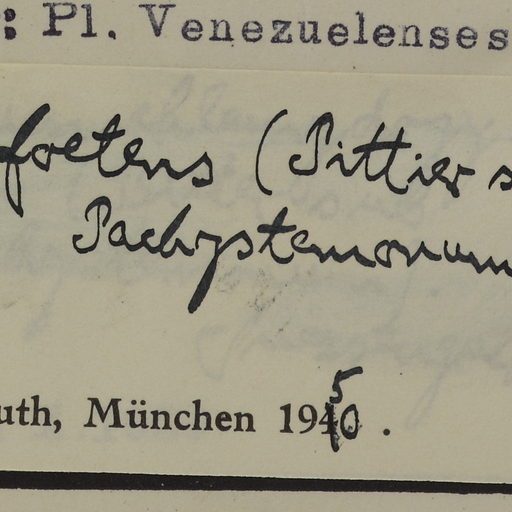 : Pl. Venezuelenses
foetens (Pittier s
Pachystemonum
uth, München 1950 .